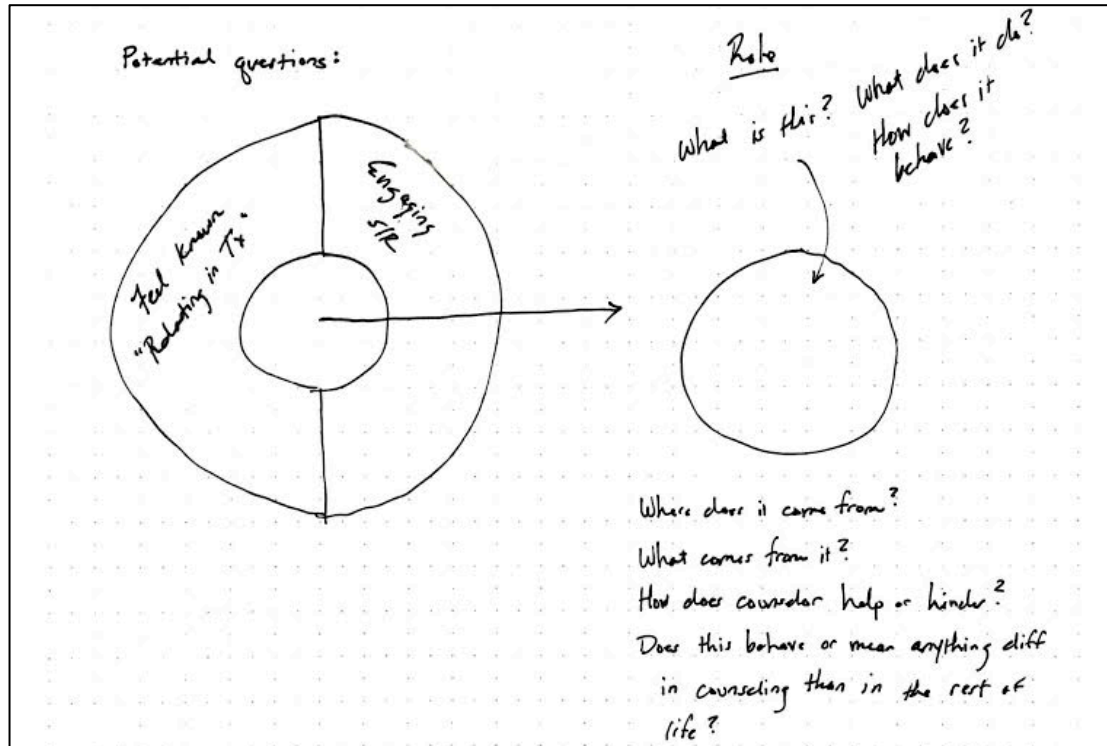 Potential questions:
Feel Known
"Relating in Tx"
Engaging
S/R
What is this?
What does it do?
How does it
behave?
Where does it come from?
What comes from it?
How does counselor help or hinder?
Does this behave or mean anything diff
in counseling than in the rest of
life?